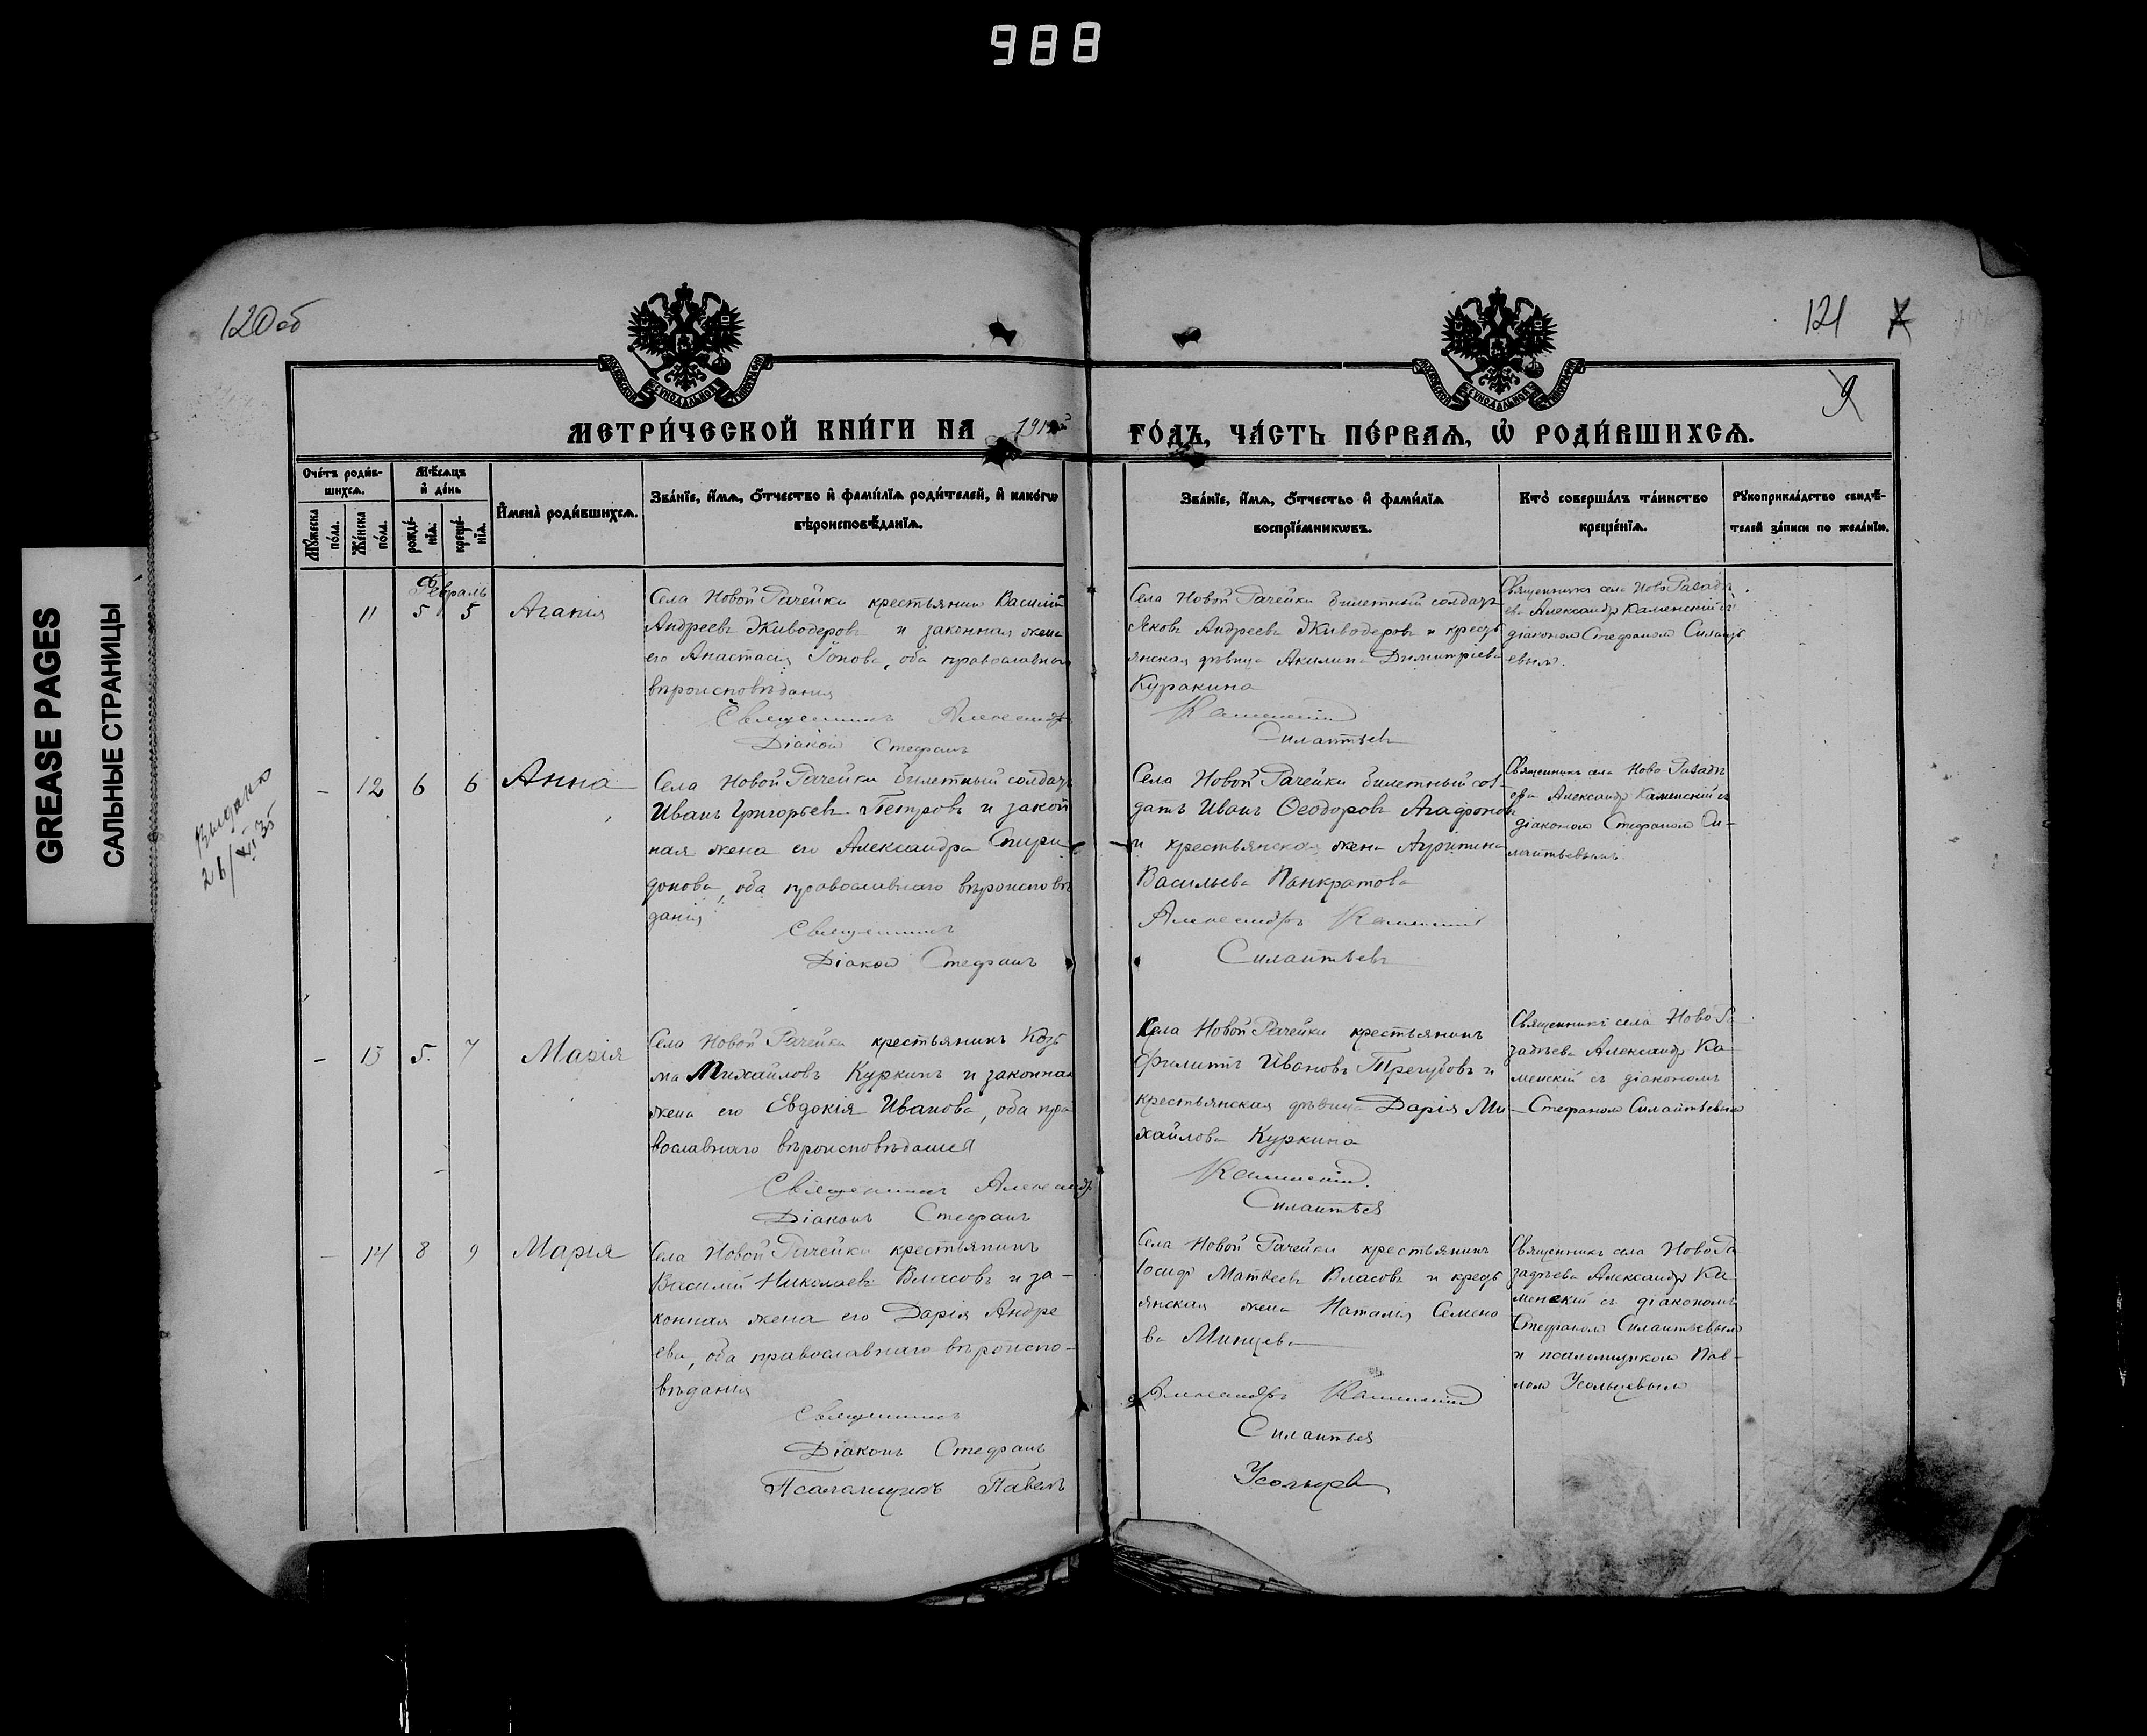 988
GREASE PAGES
САЛЬНЫЕ СТРАНИЦЫ
120об
121
9
МЕТРИ́ЧЕСКОЙ КНИ́ГИ НА
ГО́ДЪ, ЧА́СТЬ ПЕ́РВАѦ, Ѡ҆ РОДИ́ВШИХСѦ.
Сче́тъ роди́в-
шихсѧ.
Мѣ́сѧцъ
и҆ де́нь
Мꙋ́жеска
по́ла.
Же́нска
по́ла.
рожде́-
нїѧ.
креще́-
нїѧ.
И҆мена̀ роди́вшихсѧ.
Зва́нїе, и҆́мѧ, ѻ҆́тчество и҆ фами́лїѧ роди́телей, и҆ како́гѡ
вѣроисповѣ́данїѧ.
Зва́нїе, и҆́мѧ, ѻ҆́тчество и҆ фами́лїѧ
воспрїе́мникѡвъ.
Кто̀ соверша́лъ та́инство
креще́нїѧ.
Рꙋкоприкла́дство свидѣ́-
телей за́писи по жела́нїю.
Февраль
11 5 5 Агапія
Села Новой Рачейки крестьянин Василій
Андреевъ Живодеровъ и законная жена
его Анастасія Іонова, оба православнаго
вѣроисповѣданія
Священникъ Александръ
Діаконъ Стефанъ
Села Новой Рачейки билетный солдатъ
Яковъ Андреевъ Живодеровъ и кресть
янская дѣвица Акилина Димитріева
Куракина
Каменскій
Силантьевъ
Священникъ села Ново Разадѣ
ева Александр Каменскій съ
діакономъ Стефаномъ Силанть
евымъ.
Выдано
26/XII 35
– 12 6 6 Анна
Села Новой Рачейки билетный солдатъ
Иванъ Григорьевъ Петровъ и закон
ная жена его Александра Спири
донова, оба православнаго вѣроисповѣ
данія
Священникъ
Діаконъ Стефанъ
Села Новой Рачейки билетный сол-
датъ Иванъ Ѳеодоровъ Агафоновъ
и крестьянская жена Агрипина
Васильева Панкратова
Александръ Каменскій
Силантьевъ
Священникъ села Ново-Разадѣ
ева Александр Каменскій съ
діакономъ Стефаномъ Си-
лантьевымъ.
– 13 5. 7 Марія
Села Новой Рачейки крестьянинъ Козь
ма Михайловъ Куркинъ и законная
жена его Евдокія Иванова, оба пра
вославнаго вѣроисповѣданія
Священникъ Александръ
Діаконъ Стефанъ
Села Новой Рачейки крестьянинъ
Филиппъ Ивановъ Трегубовъ и
крестьянская дѣвица Дарія Ми
хайлова Куркина
Каменскій.
Силантьевъ
Священникъ села Ново Ра
задѣева Александр Ка
менскій съ діакономъ
Стефаномъ Силантьевымъ
– 14 8 9 Марія
Села Новой Рачейки крестьянинъ
Василій Николаевъ Власовъ и за-
конная жена его Дарія Андре
ева, оба православнаго вѣроиспо-
вѣданія
Священникъ
Діаконъ Стефанъ
Псаломщикъ Павелъ
Села Новой Рачейки крестьянинъ
Іосифъ Матвеевъ Власовъ и кресть
янская жена Наталія Семено
ва
Александръ Каменскій
Силантьевъ
Усольцев
Священникъ села Ново Ра
задѣева Александр Ка
менскій съ діакономъ
Стефаномъ Силантьевымъ
и псаломщикомъ Пав-
ломъ Усольцевымъ